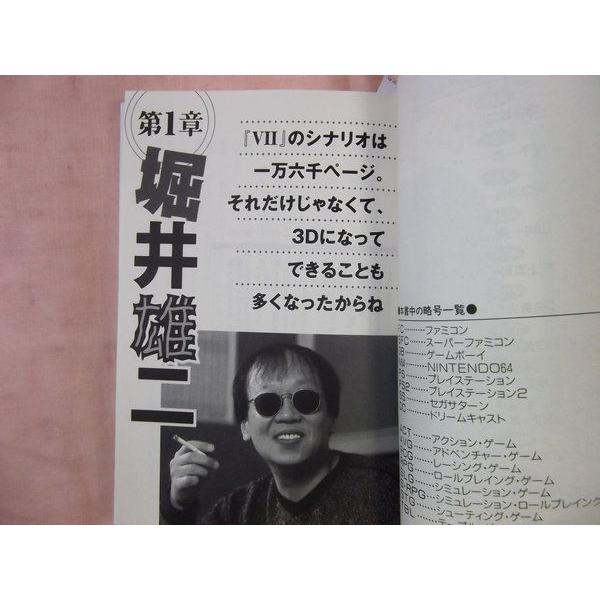 第1章
堀井雄二
『VII』のシナリオは
一万六千ページ。
それだけじゃなくて、
3Dになって
できることも
多くなったからね
書中の略号一覧●
FC………ファミコン
SFC………スーパーファミコン
GB………ゲームボーイ
N64………NINTENDO64
PS………プレイステーション
PS2………プレイステーション2
SS………セガサターン
DC………ドリームキャスト
ACT……アクション・ゲーム
AVG……アドベンチャー・ゲーム
RCG……レーシング・ゲーム
RPG……ロールプレイング・ゲーム
SLG……シミュレーション・ゲーム
S・RPG…シミュレーション・ロールプレイング
STG……シューティング・ゲーム
TBL……テーブル